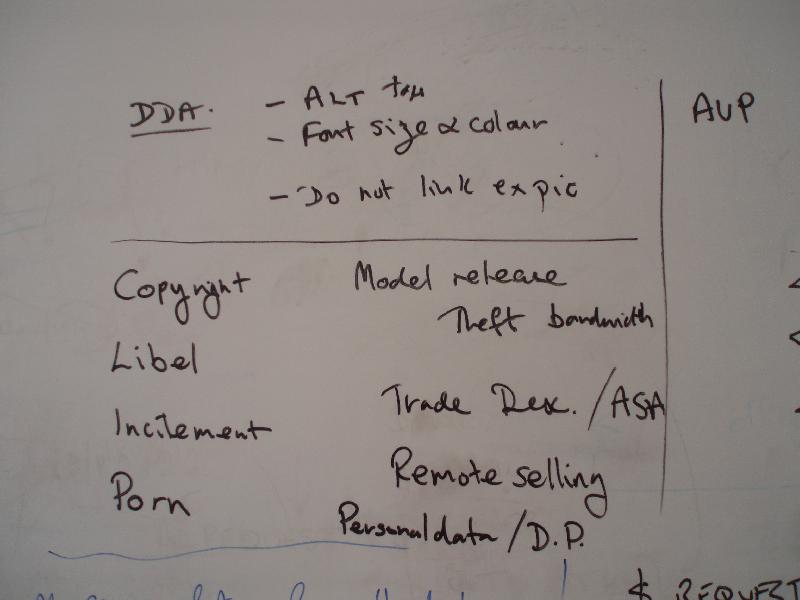 DDA. - ALT
- Font size & colour
- Do not link ex pic
AUP
Copyright
Libel
Incitement
Porn
Model release
Theft bandwidth
Trade Des. / ASA
Remote selling
Personal data / D.P.
$ REQUEST